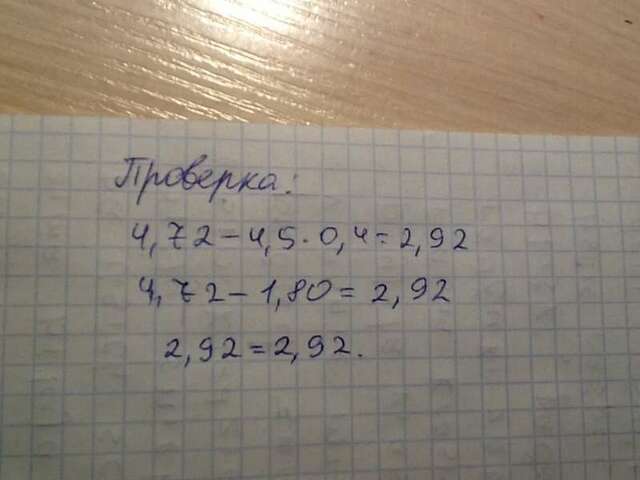 Проверка:
4,72-4,5·0,4=2,92
4,72-1,80=2,92
2,92=2,92.